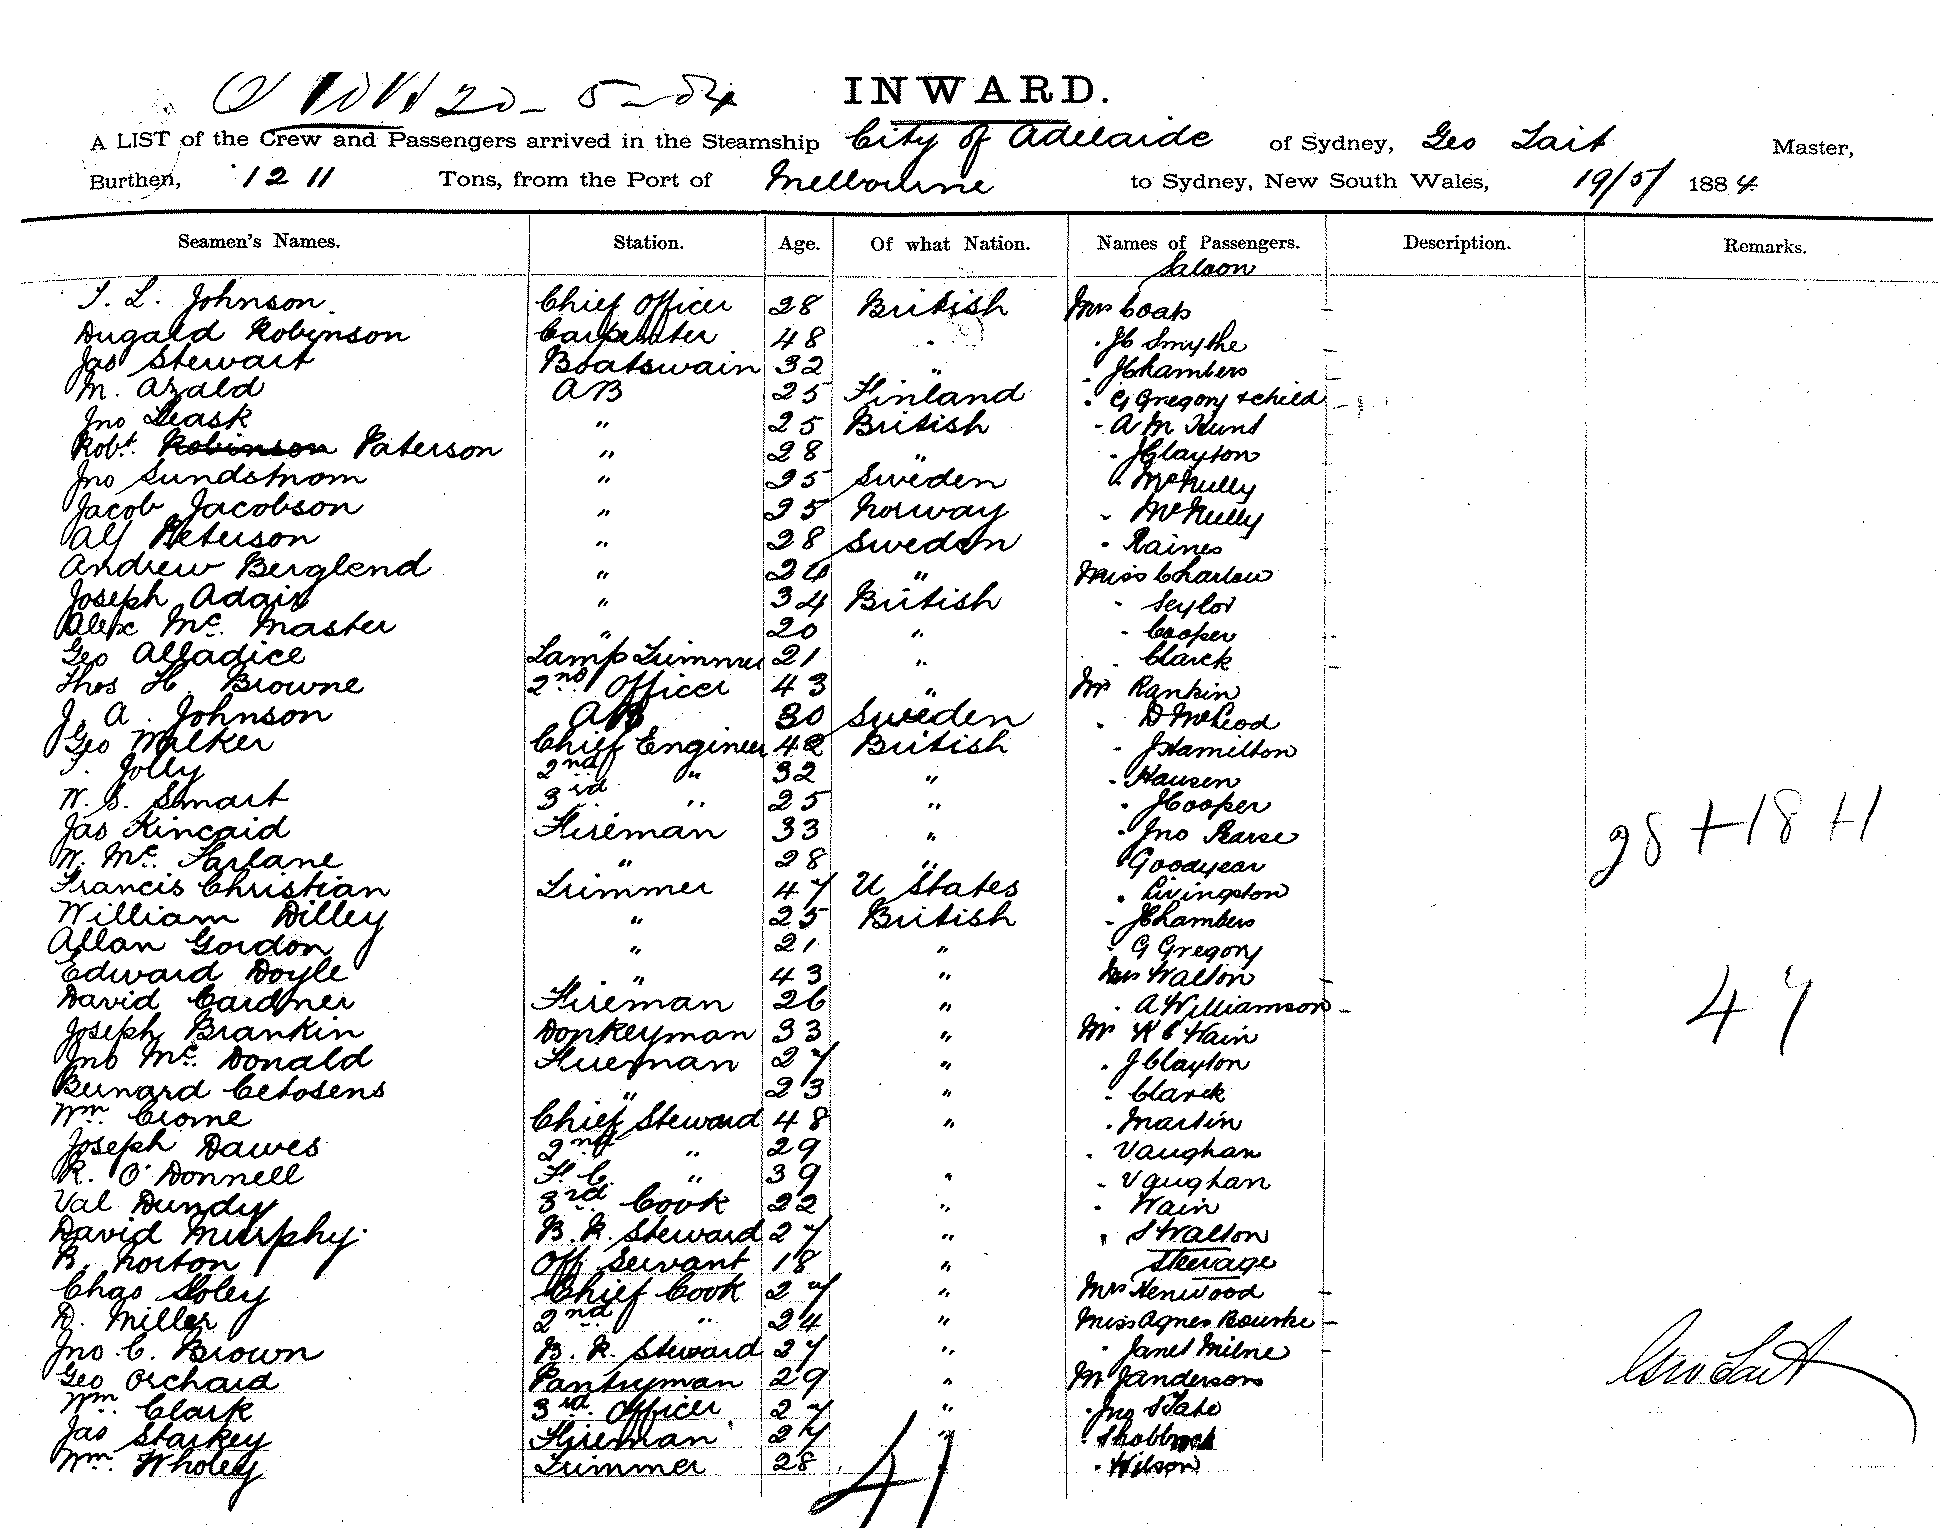 20-5-84 INWARD.
A LIST of the Crew and Passengers arrived in the Steamship City of Adelaide of Sydney, Geo Lait Master,
Burthen, 1211 Tons, from the Port of Melbourne to Sydney, New South Wales, 19/5/ 1884
Seamen's Names. Station. Age. Of what Nation. Names of Passengers. Description. Remarks.
Saloon
T. L. Johnson. Chief Officer 28 British Mrs Coats -
Dugald Robinson Carpenter 48 " " Jc Smythe -
Jas Stewart Boatswain 32 " " J Chambers -
M. Azald AB 25 Finland " G Gregory & child -
Jno Leask " 25 British " A M Hunt -
Robt. Robinson Paterson " 28 " " J Clayton -
Jno Sundstrom " 25 Sweden " McNully -
Jacob Jacobson " 25 Norway " McNully -
Alf Peterson " 28 Sweden " Raines -
Andrew Berglend " 24 " Miss Charlew -
Joseph Adair " 34 British " Seylor -
Alex Mc. Master " 20 " " Cooper -
Geo Alladice Lamp Trimmer 21 " " Clarck -
Thos H. Browne 2nd Officer 43 " Mr Rankin
J. A. Johnson AB 30 Sweden " D McLeod
Geo Walker Chief Engineer 42 British " J Hamilton
T. Jolly 2nd " 32 " " Hausen
W. S. Smart 3rd " 25 " " J Cooper
Jas Kincaid Fireman 33 " " Jno Pearse 28 + 18 + 1
W. Mc. Farlane " 28 " " Goodyear
Francis Christian Trimmer 47 U States " Livingston
William Dilley " 25 British " J Chambers
Allan Gordon " 21 " " G Gregory
Edward Doyle " 43 " Mrs Walton -
David Gardner Fireman 26 " " A Williamson - 47
Joseph Brankin Donkeyman 33 " Mr H C Wain
Jno Mc. Donald Fireman 27 " " J Clayton
Bernard Cetosens " 23 " " Clarck
Wm. Crome Chief Steward 48 " " Martin
Joseph Dawes 2nd " 29 " Vaughan
R. O'Donnell F. C. " 39 " " Vaughan
Val Dundy 3rd Cook 22 " " Wain
David Murphy. B. R. Steward 27 " " S Walton
R. Norton Off Servant 18 " Steerage
Chas Soley Chief Cook 27 " Mrs Henwood -
D. Miller 2nd " 24 " Miss Agnes Bourke -
Jno. C. Brown B. R. Steward 27 " " Janet Milne -
Geo Orchard Pantryman 29 " Mr J Anderson Geo Lait
Wm. Clark 3rd. Officer 27 " " Jno State
Jas Starkey Fireman 27 "
Wm. Wholey Trimmer 28 " Wilson
41